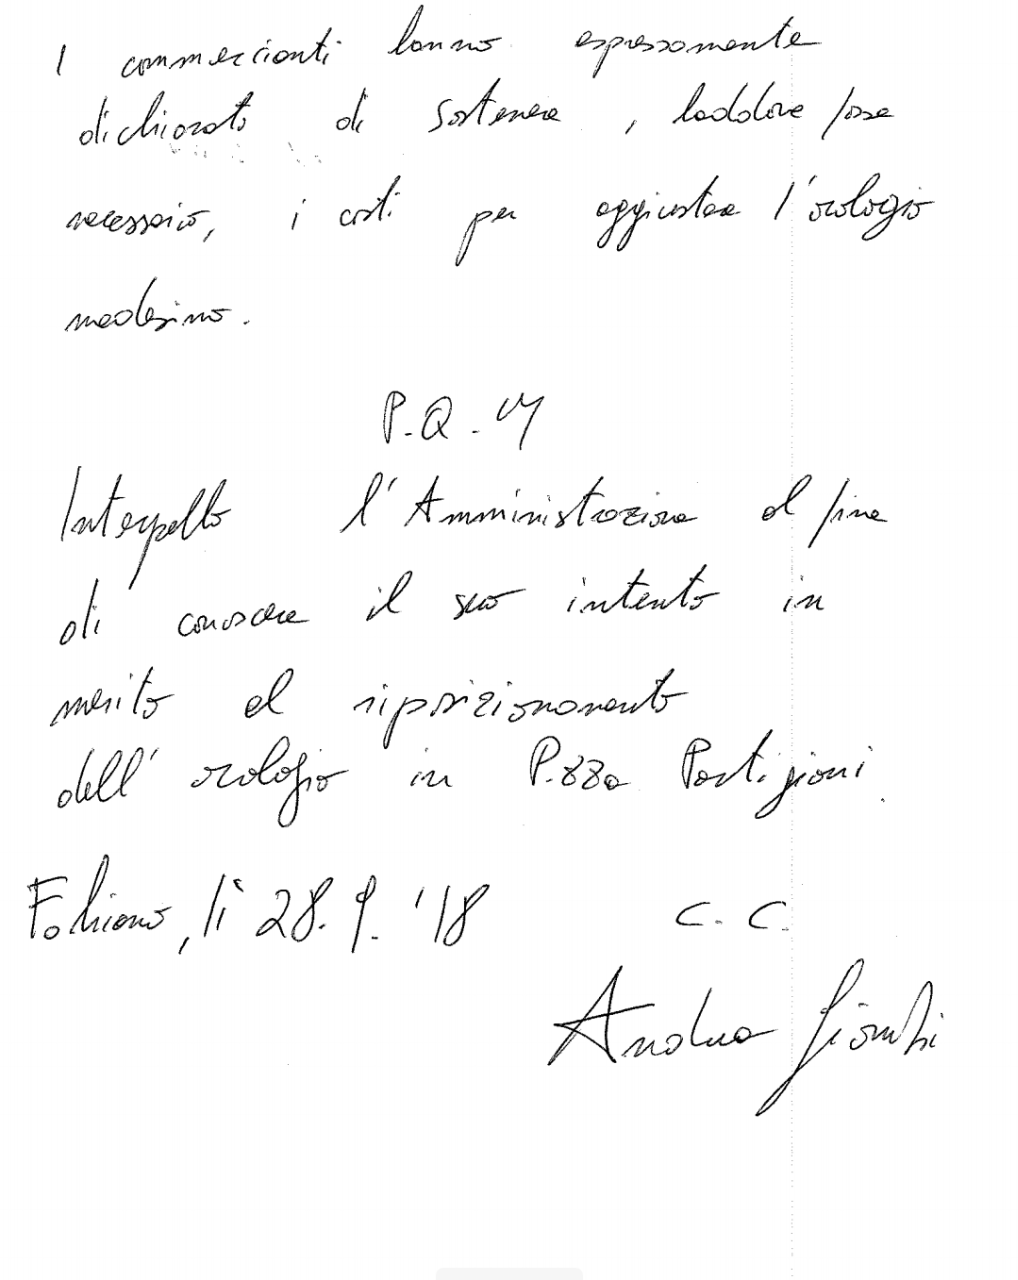 I commercianti hanno espressamente
dichiarato di sostenere, laddove fosse
necessario, i costi per aggiustare l'orologio
medesimo.
P.Q.M
Interpello l'Amministrazione al fine
di conoscere il suo intento in
merito al riposizionamento
dell'orologio in P.zza Partigiani.
Foligno, lì 28.9.'18 C.C.
Andrea